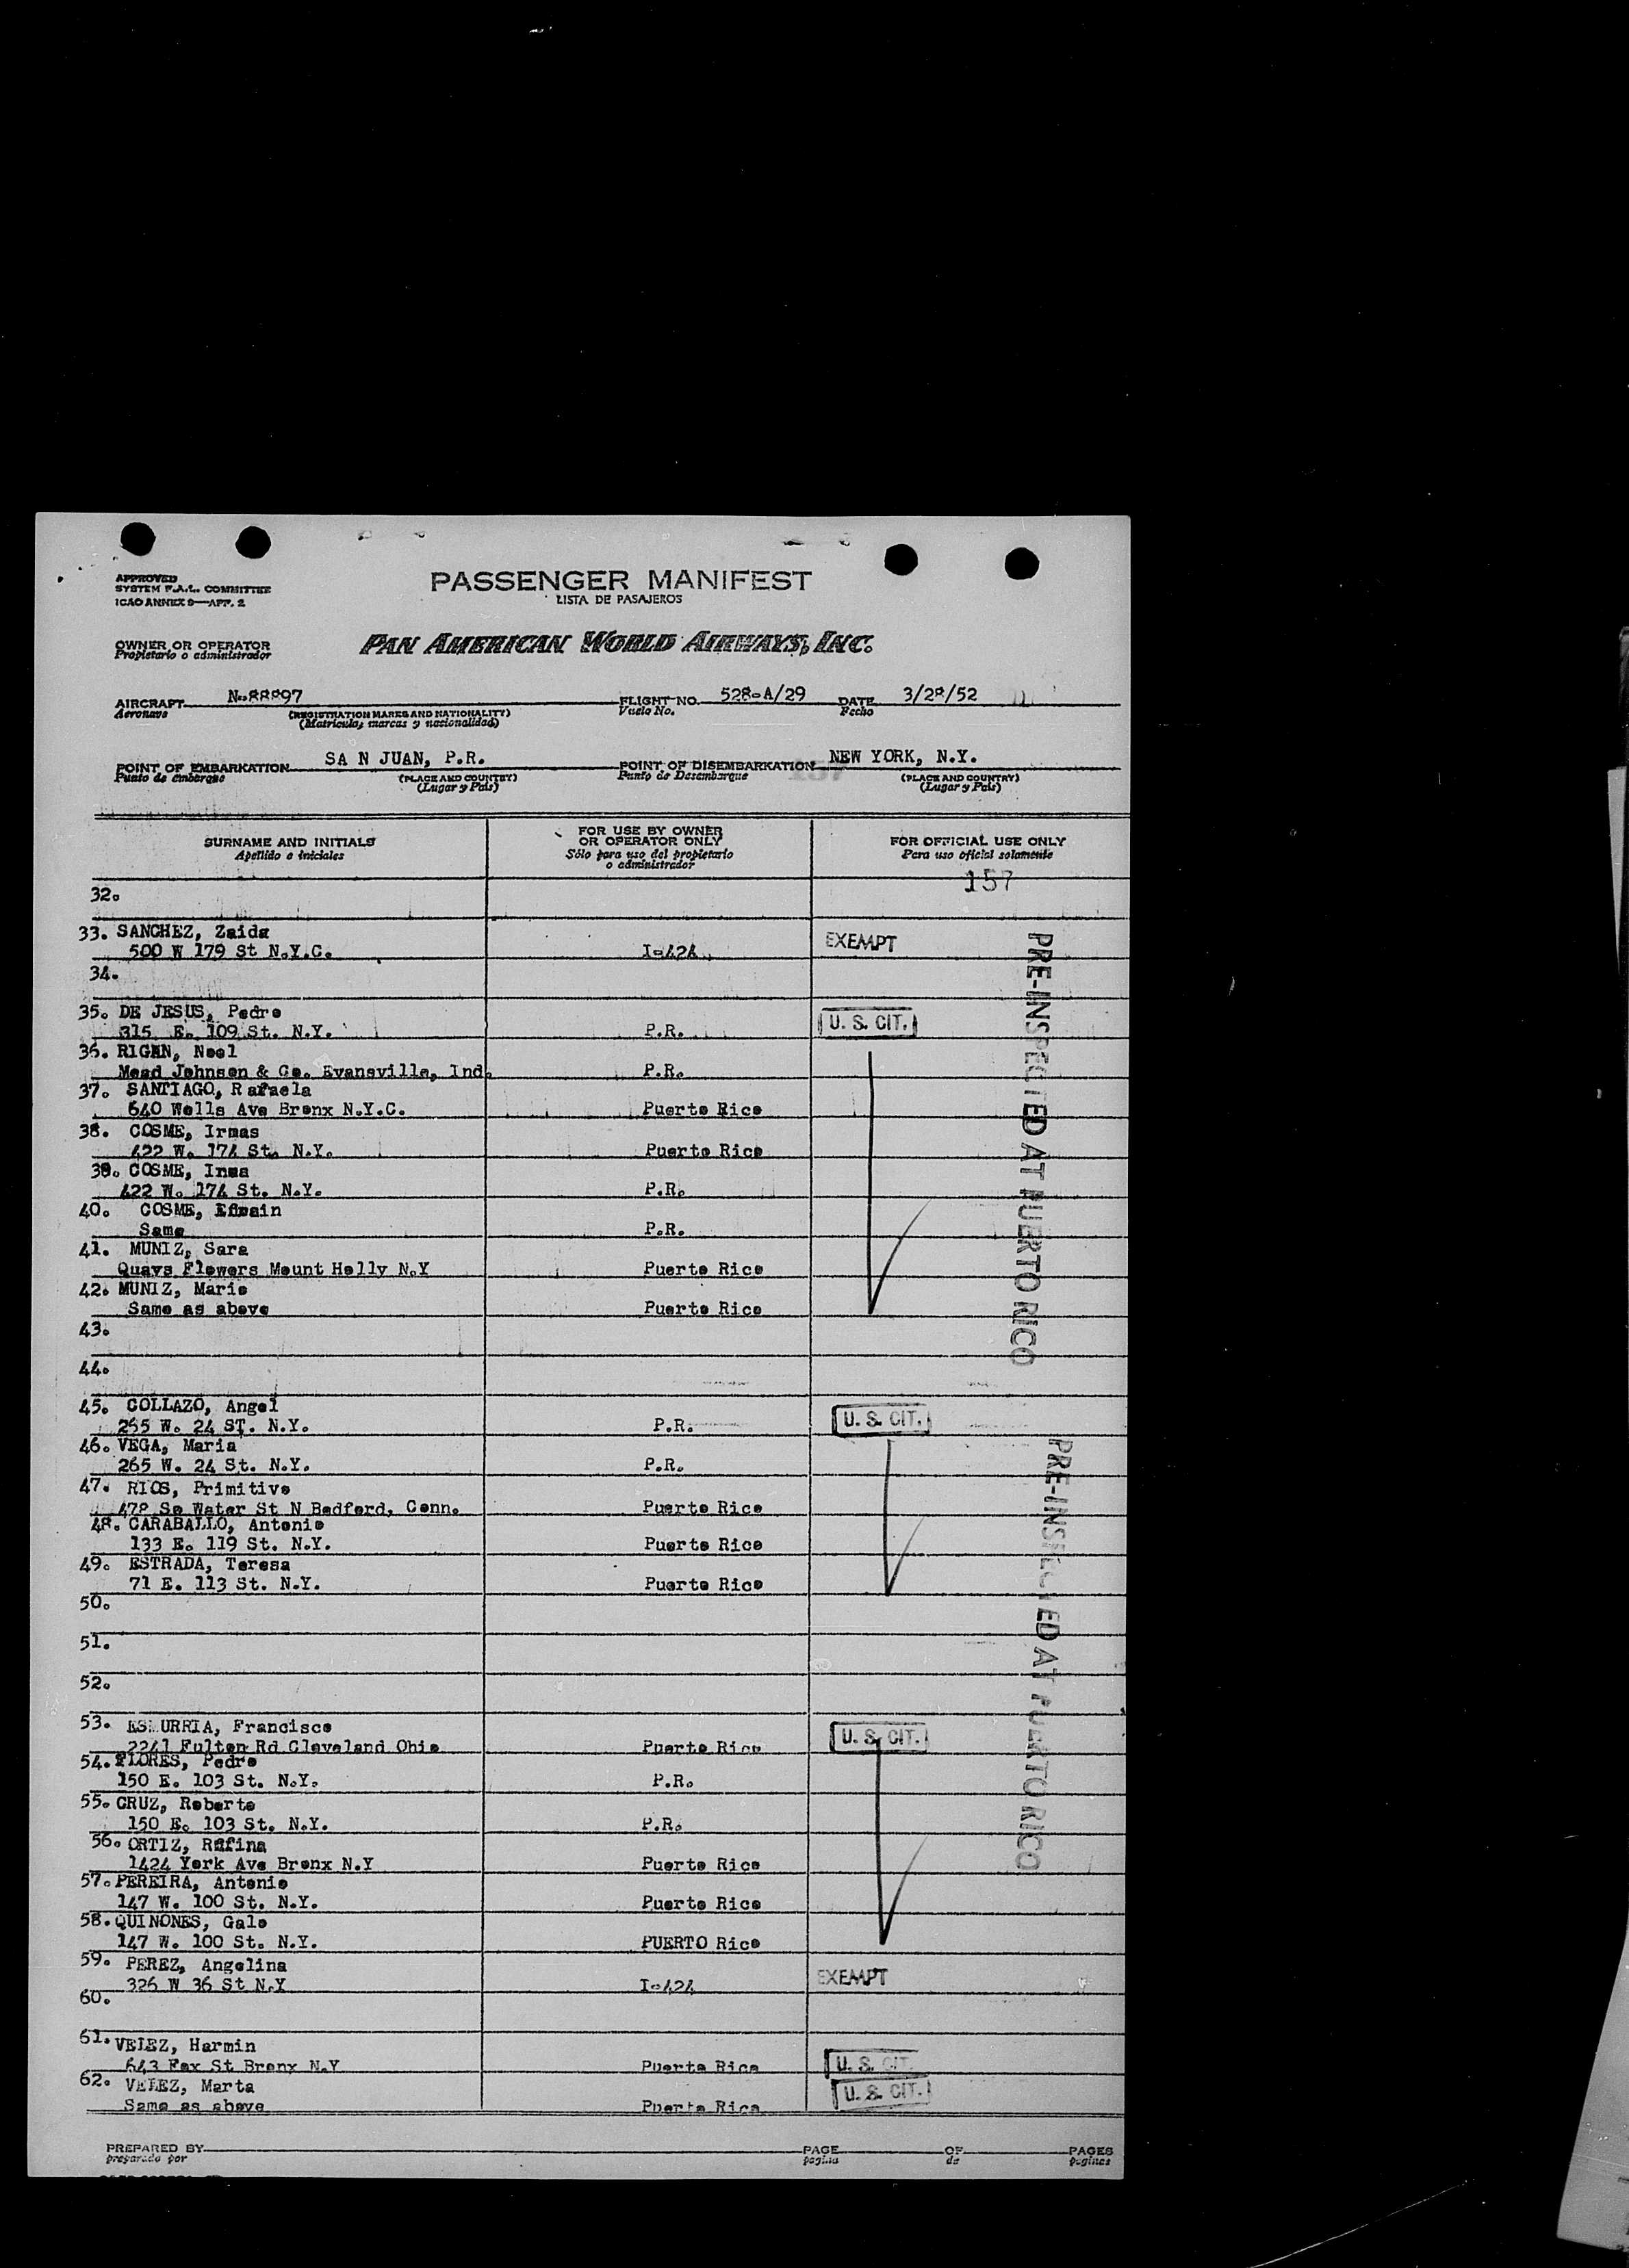 APPROVED
SYSTEM F.A.L. COMMITTEE
ICAO ANNEX 9—APP. 2
PASSENGER MANIFEST
LISTA DE PASAJEROS
OWNER OR OPERATOR
Propietario o administrador
PAN AMERICAN WORLD AIRWAYS, INC.
AIRCRAFT N-88897 FLIGHT NO. 528-A/29 DATE 3/28/52
Aeronave (REGISTRATION MARKS AND NATIONALITY) Vuelo No. Fecho
(Matriculas, marcas y nacionalidad)
POINT OF EMBARKATION SA N JUAN, P.R. POINT OF DISEMBARKATION NEW YORK, N.Y.
Punto de embarque (PLACE AND COUNTRY) Punto de Desembarque 157 (PLACE AND COUNTRY)
(Lugar y Pais) (Lugar y Pais)
SURNAME AND INITIALS FOR USE BY OWNER OR OPERATOR ONLY FOR OFFICIAL USE ONLY
Apellido e iniciales Sólo para uso del propietario o administrador Para uso oficial solamente
157
32.
33. SANCHEZ, Zaida
500 W 179 St N.Y.C. I-424 EXEMPT
34.
35. DE JESUS, Pedro
315 E. 109 St. N.Y. P.R. U. S. CIT.
36. RIGAN, Noel
Mead Johnson & Co. Evansville, Ind. P.R.
37. SANTIAGO, Rafaela
640 Wells Ave Bronx N.Y.C. Puerto Rico
38. COSME, Irmas
422 W. 174 St. N.Y. Puerto Rico
39. COSME, Inea
422 W. 174 St. N.Y. P.R.
40. COSME, Efrain
Same P.R.
41. MUNIZ, Sara
Quays Flowers Mount Holly N.Y Puerto Rico
42. MUNIZ, Mario
Same as above Puerto Rico
PRE-INSPECTED AT PUERTO RICO
43.
44.
45. COLLAZO, Angel
265 W. 24 ST. N.Y. P.R. U. S. CIT.
46. VEGA, Maria
265 W. 24 St. N.Y. P.R.
47. RIOS, Primitivo
478 So Water St N Bedford, Conn. Puerto Rico
48. CARABALLO, Antonio
133 E. 119 St. N.Y. Puerto Rico
49. ESTRADA, Teresa
71 E. 113 St. N.Y. Puerto Rico
50.
51.
52.
PRE-INSPECTED AT PUERTO RICO
53. ESMURRIA, Francisco
2241 Fulton Rd Cleveland Ohio Puerto Rico U. S. CIT.
54. FLORES, Pedro
150 E. 103 St. N.Y. P.R.
55. CRUZ, Roberto
150 E. 103 St. N.Y. P.R.
56. ORTIZ, Rufina
1424 York Ave Bronx N.Y Puerto Rico
57. PEREIRA, Antonio
147 W. 100 St. N.Y. Puerto Rico
58. QUINONES, Galo
147 W. 100 St. N.Y. PUERTO Rico
59. PEREZ, Angelina
326 W 36 St N.Y I-424 EXEMPT
60.
61. VELEZ, Harmin
643 Fox St Bronx N.Y Puerto Rico U. S. CIT.
62. VELEZ, Marta
Same as above Puerto Rico U. S. CIT.
PREPARED BY PAGE OF PAGES
preparado por pagina de paginas